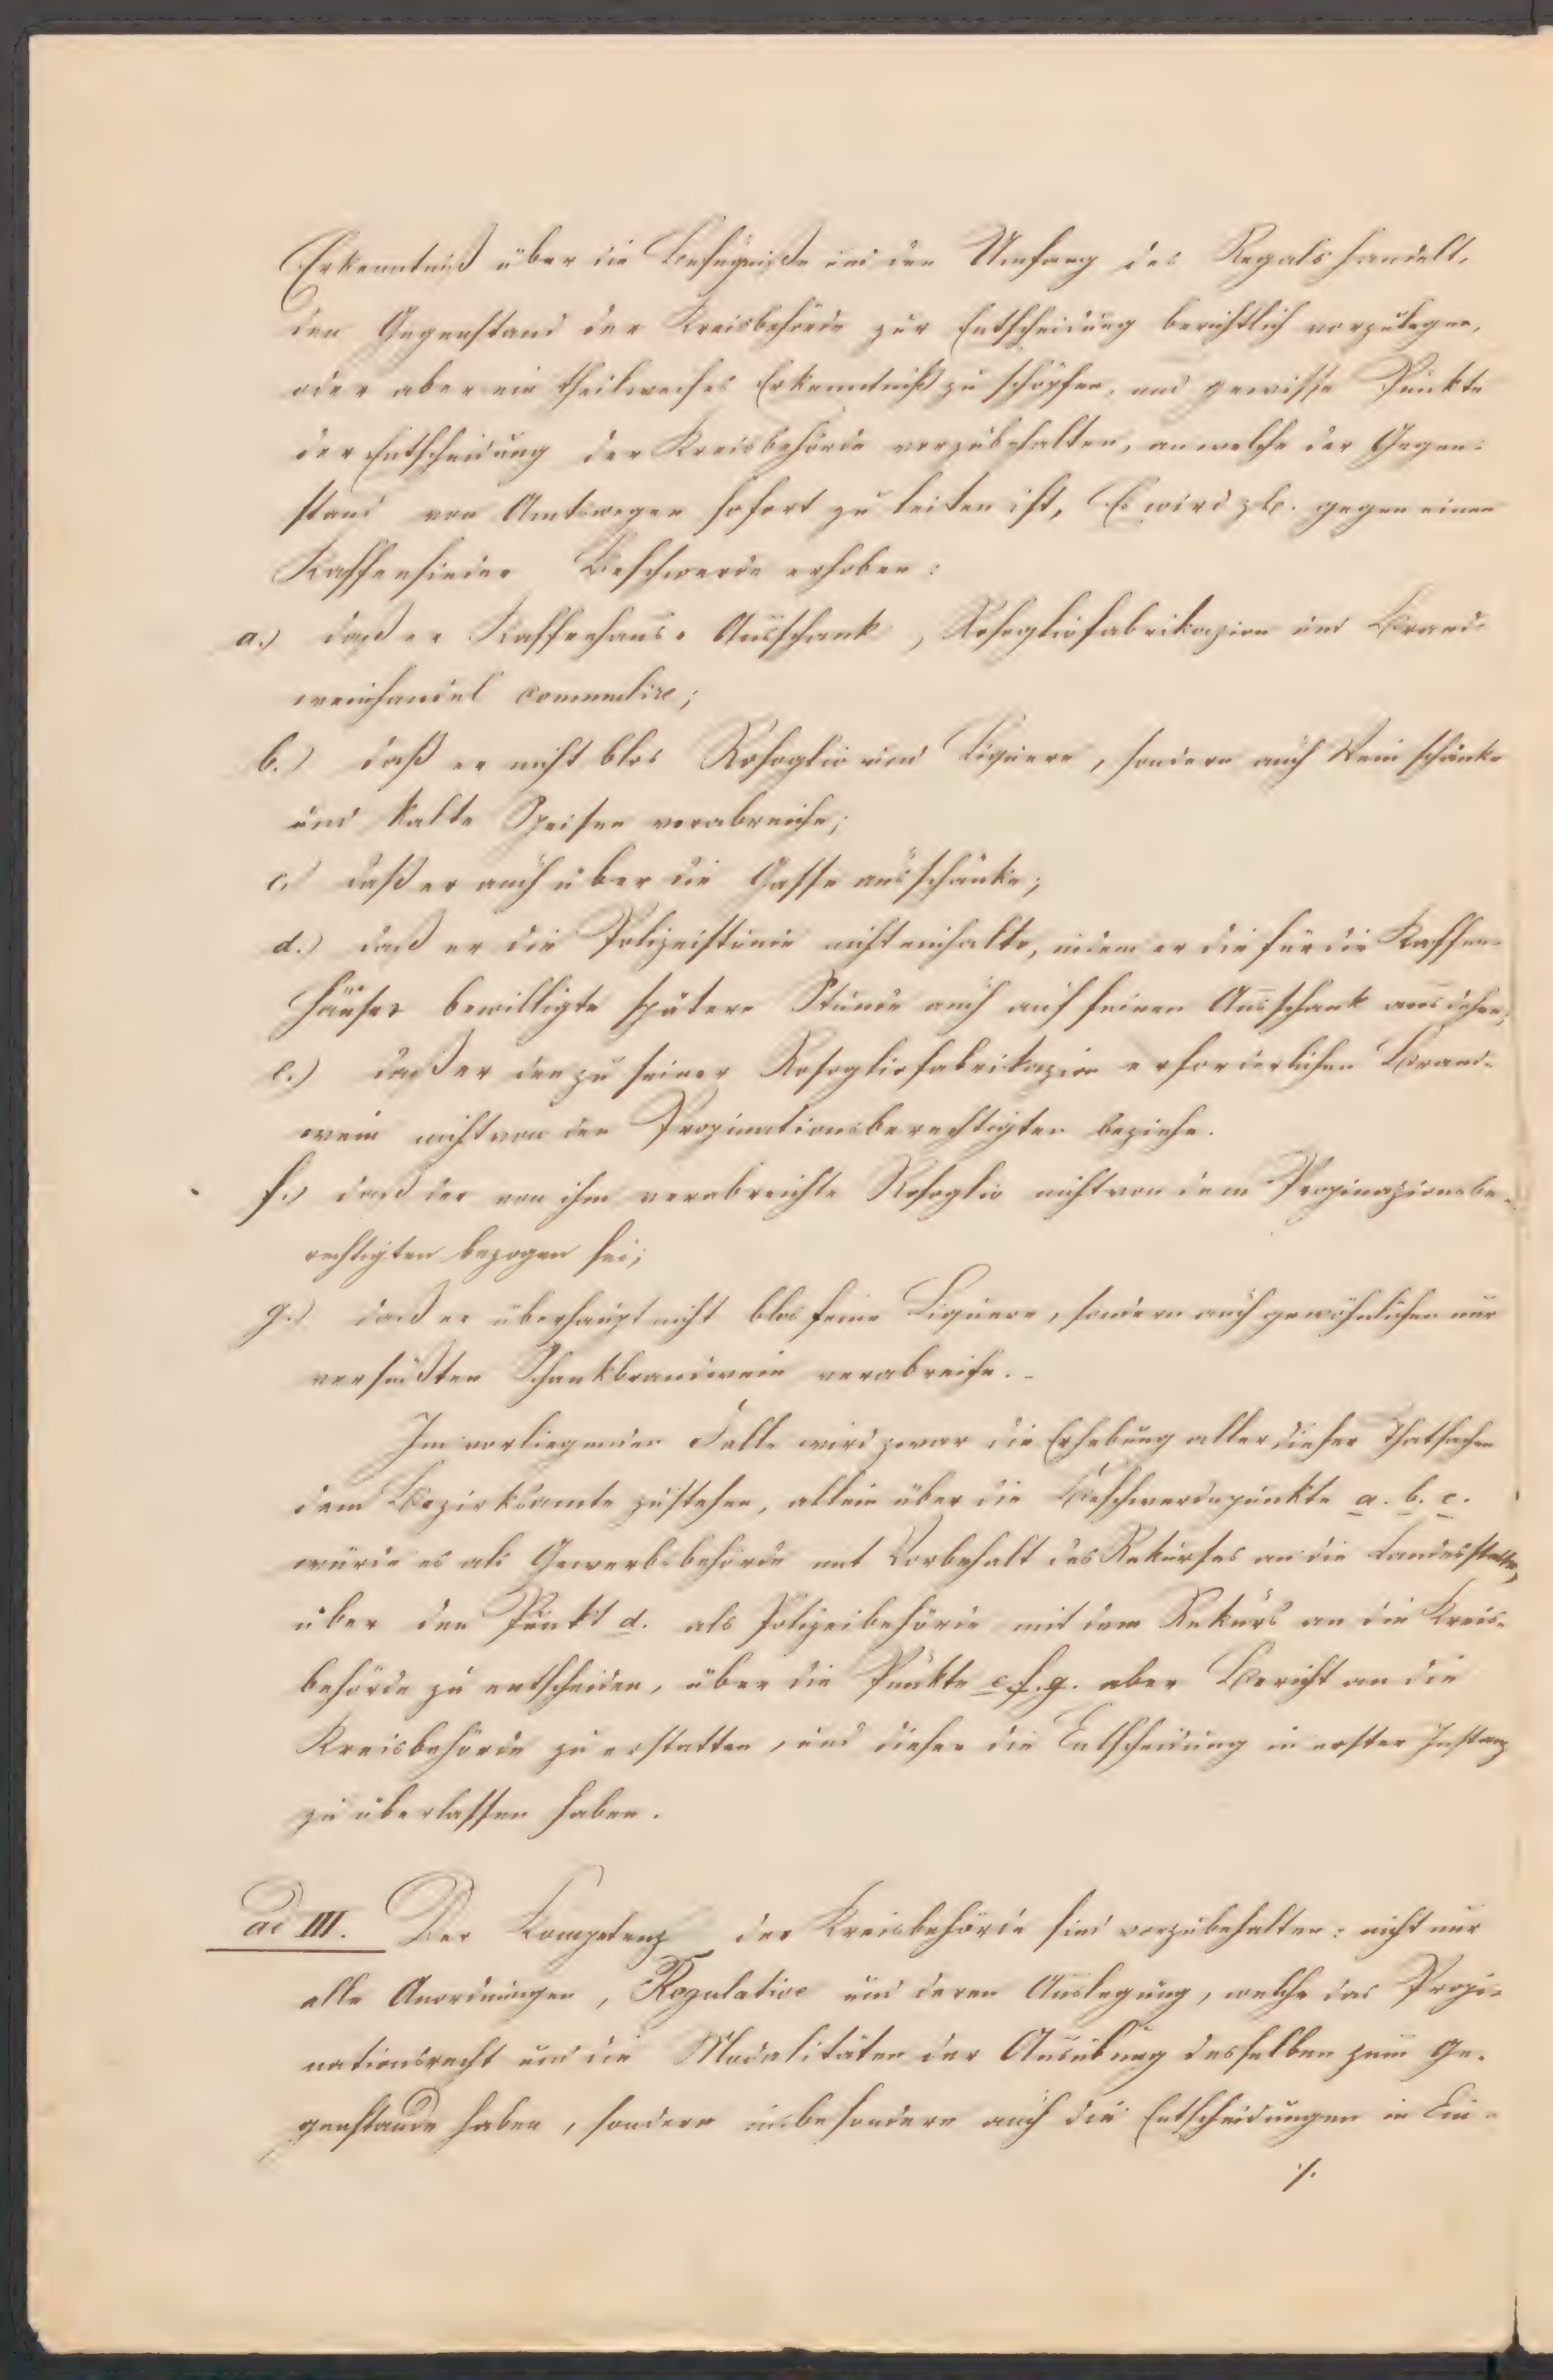 Erkenntniß über die Befugniße und den Umfang des Regals handelt,
den Gegenstand der Kreisbehörde zur Entscheidung berichtlich vorzulegen,
oder aber ein theilweises Erkenntniß zu schöpfen, und gewisse Punkte
der Entscheidung der Kreisbehörde vorzubehalten, an welche der Gegen-
stand von Amtswegen sofort zu leiten ist, Es wird z.B. gegen einen
Kaffeesieder Beschwerde erhoben:
a.) daß er Kaffeehaus-Ausschank, Rosogliofabrikazion und Brand-
weinhandel commulire;
b.) daß er nicht blos Rosoglio und Liquere, sondern auch Wein schänke
und kalte Speisen verabreiche;
c.) daß er auch über die Gasse ausschänke;
d.) daß er die Polizeistunde nicht einhalte, indem er die für die Kaffee-
häuser bewilligte spätere Stunde auch auf seinen Ausschank ausdehne;
e.) daß er den zu seiner Rosogliofabrikazion erforderlichen Brand-
wein nicht von den Propinationsberechtigten beziehe.
f.) daß der von ihm verabreichte Rosoglio nicht von dem Propinazionsbe-
rechtigten bezogen sei;
g.) daß er überhaupt nicht blos feine Liquere, sondern auch gewöhnlichen nur
versüßten Schankbrandwein verabreiche. -
Im vorliegenden Falle wird zwar die Erhebung aller dieser Thatsachen
dem Bezirksamte zustehen, allein über die Beschwerdepunkte a. b. c.
würde es als Gewerbsbehörde mit Vorbehalt des Rekurses an die Landesstelle,
über den Punkt d. als Polizeibehörde mit dem Rekurs an die Kreis-
behörde zu entscheiden, über die Punkte e. f. g. aber Bericht an die
Kreisbehörde zu erstatten, und dieser die Entscheidung in erster Instanz
zu überlassen haben.
ad III. Der Competenz der Kreisbehörde sind vorzubehalten: nicht nur
alle Anordnungen, Regulative und deren Auslegung, welche das Propi-
nationsrecht und die Modalitäten der Ausübung desselben zum Ge-
genstande haben, sondern insbesondere auch die Entscheidungen in Ein-
./.